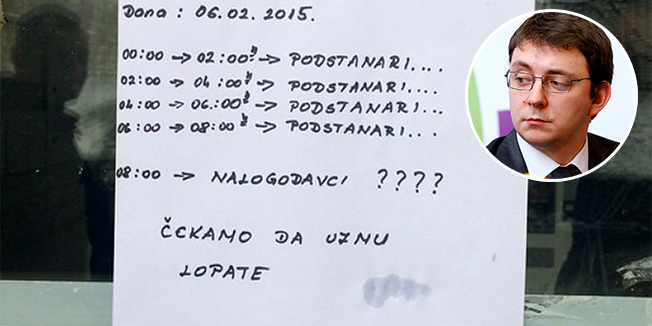 Dana : 06.02.2015.
00:00 → 02:00h → PODSTANARI....
02:00 → 04:00h → PODSTANARI....
04:00 → 06:00h → PODSTANARI....
06:00 → 08:00h → PODSTANARI...
08:00 → NALOGODAVCI ????
ČEKAMO DA UZMU
LOPATE